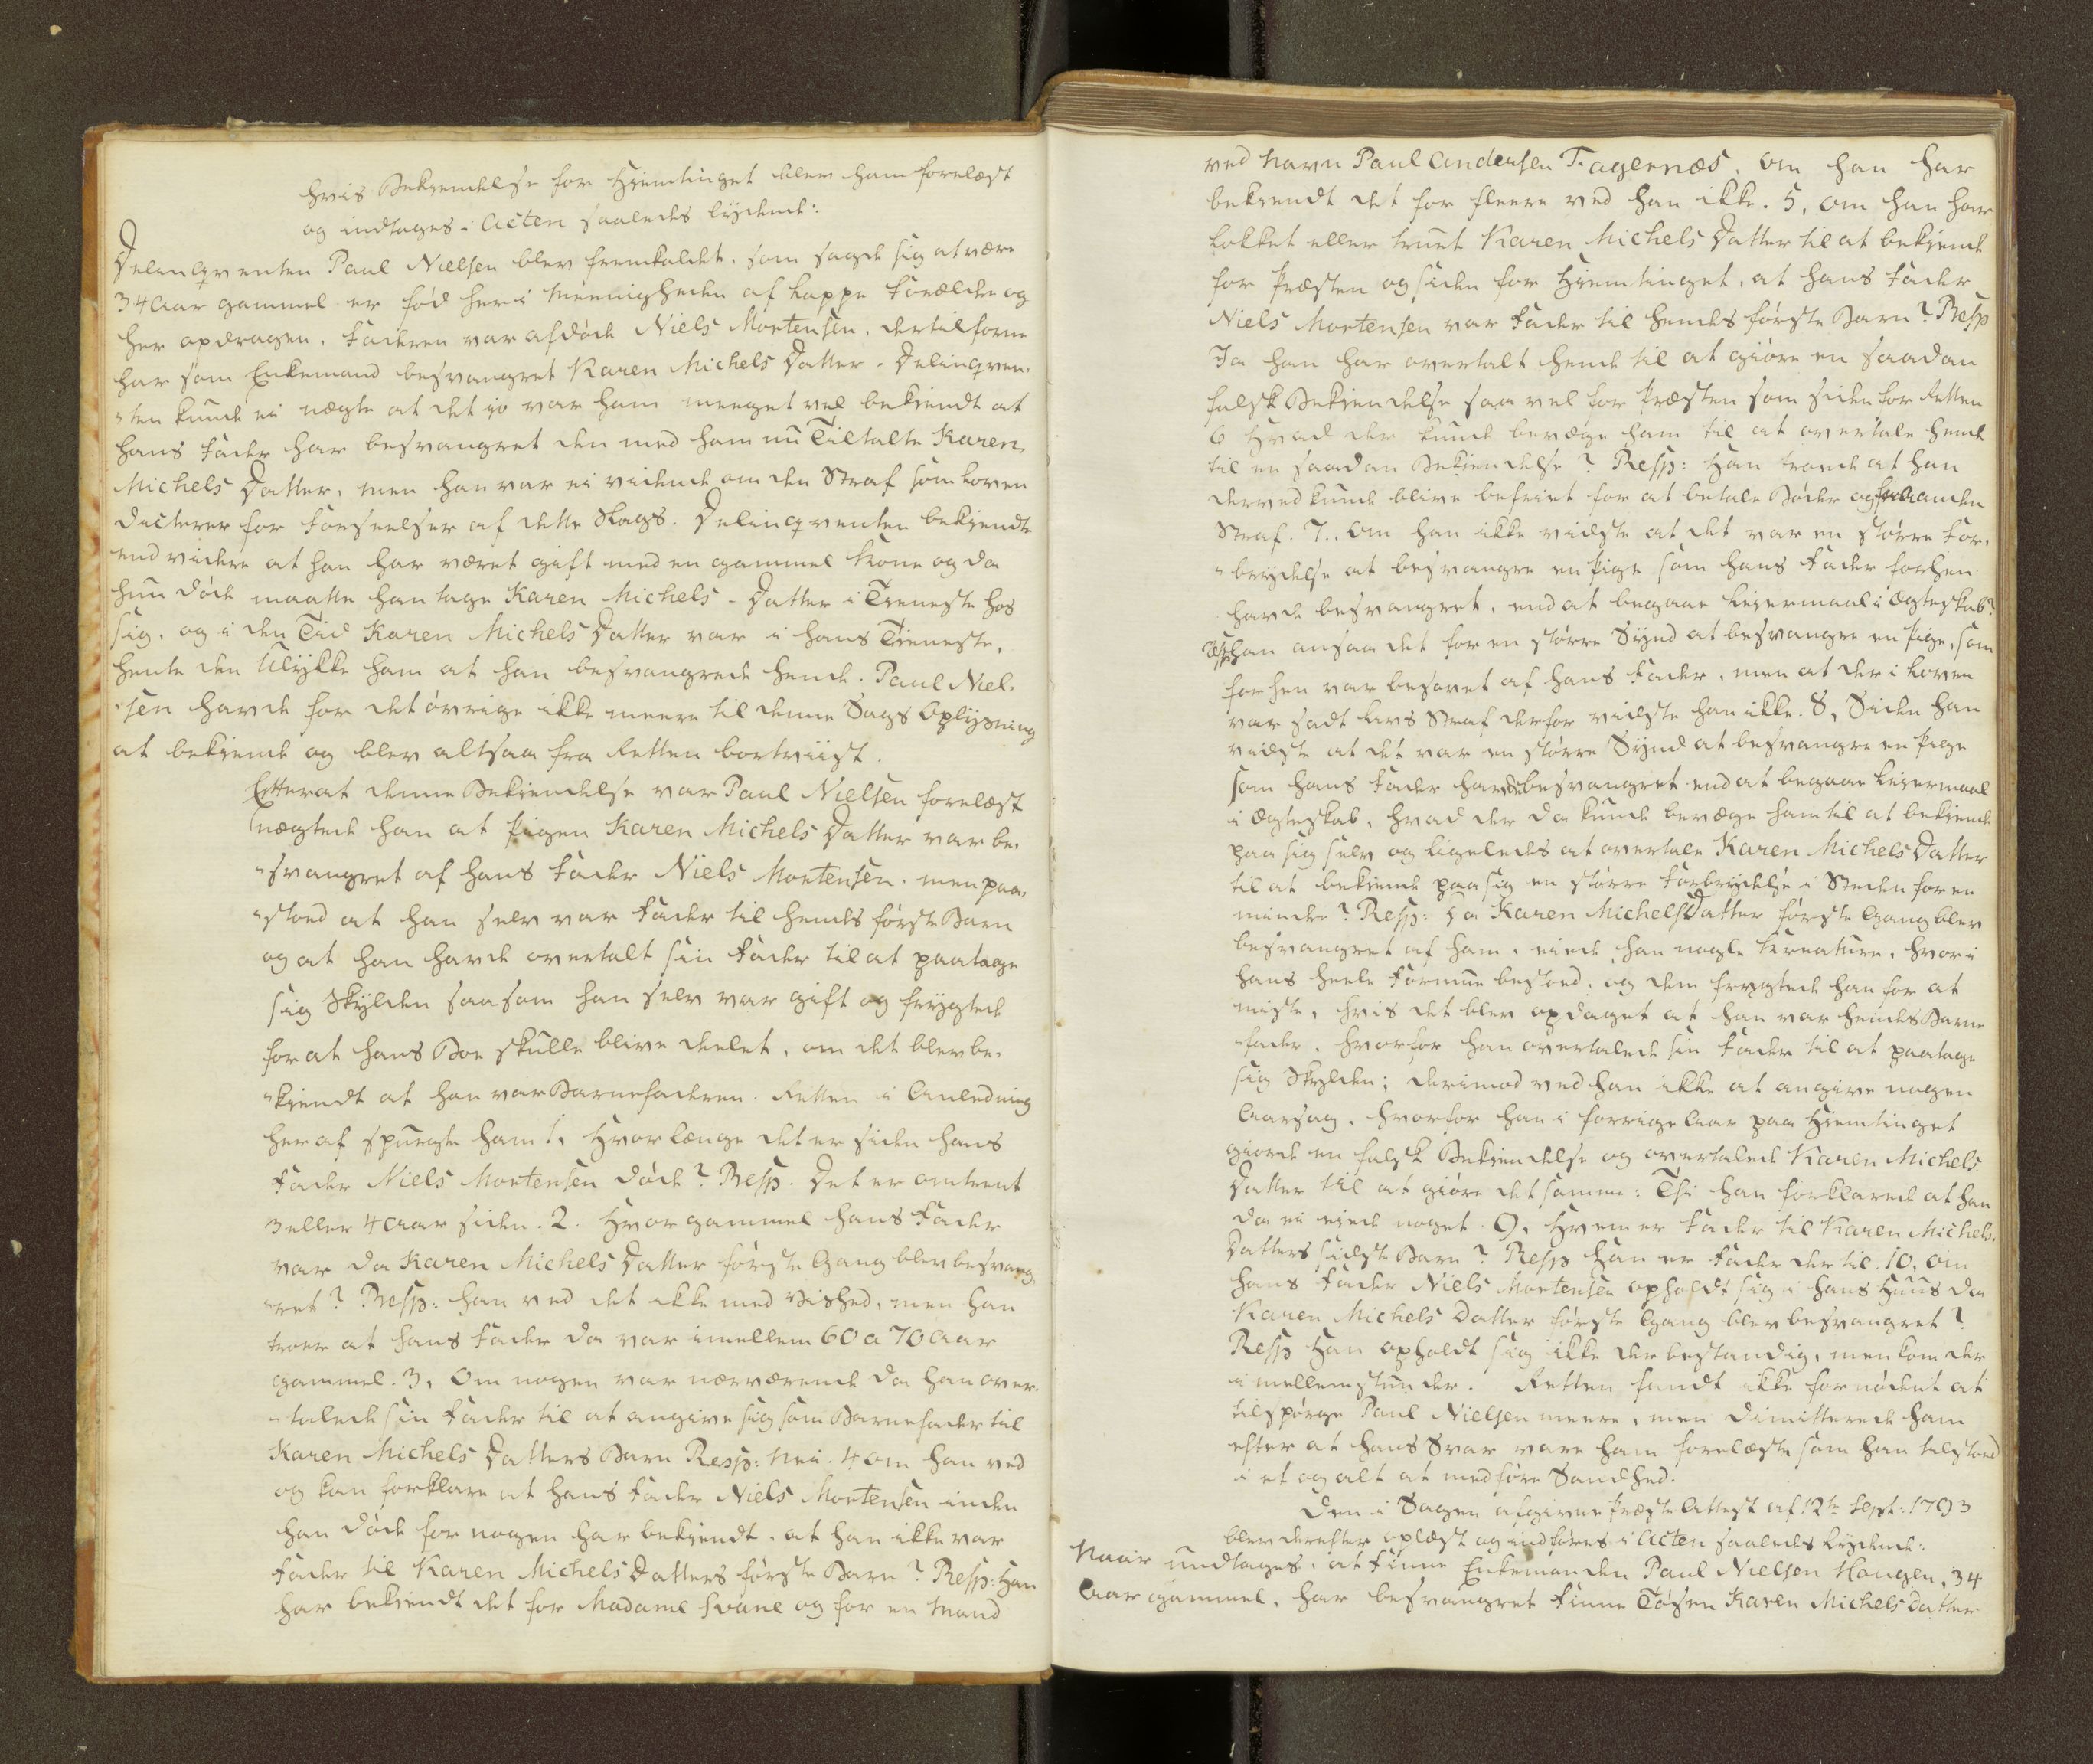 hvis Bekiendelse for Hiemtinget blev ham forelæst
og indtages i Acten saaledes lydende:
Delinqventen Paul Nielsen blev fremkaldet, som sagde sig at være
34 Aar gammel er fød her i Menigheden af Lappe Forældre og
her opdragen. Faderen var afdøde Niels Mortensen, der tilforne
har som Enkemand besvangret Karen Michels Datter. Delinqven-
"ten kunde ei nægte at det jo var ham meeget vel bekiendt at
hans Fader har besvangret den med ham nu Tiltalte Karen
Michels Datter, men han var ei vidende om den Straf som Loven
dicterer for Forseelser af dette Slags. Delinqventen bekiendte
end videre at han har været gift med en gammel Kone og da
hun døde maatte han tage Karen Michels-Datter i Tieneste hos
sig, og i den Tid Karen Michels Datter var i hans Tieneste,
hente den Ulykke ham at han besvangrede hende. Paul Niel-
"sen havde for det øvrige ikke meere til denne Sags Oplysning
at bekiende og blev altsaa fra Retten bortviist.
Efterat denne Bekiendelse var Paul Nielsen forelæst
nægtede han at Pigen Karen Michels Datter var be-
"svangret af hans Fader Niels Mortensen, men paa-
"stoed at han selv var Fader til hendes første Barn
og at han havde overtalt sin Fader til at paatage
sig Skylden saasom han selv var gift og frygtede
for at hans Boe skulle blive deelet, om det blev be-
"kiendt at han var Barnefaderen. Retten i Anledning
heraf spurgte ham 1, Hvor længe det er siden hans
Fader Niels Mortensen døde? Resp. Det er omtrent
3 eller 4 Aar siden. 2. Hvor gammel hans Fader
var da Karen Michels Datter første Gang blev besvang-
"ret? Resp: han ved det ikke med Vished, men han
troer at hans Fader da var imellem 60 a 70 Aar
gammel. 3, Om nogen var nærværende da han over-
"talede sin Fader til at angive sig som Barnefader til
Karen Michels Datters Barn Resp: Nei. 4 om han ved
og kan forklare at hans Fader Niels Mortensen inden
han døde for nogen har bekiendt, at han ikke var
Fader til Karen Michels Datters første Barn? Resp: Han
har bekiendt det for Madame Svane og for en Mand
ved Navn Paul Andersen Fagernæs. om han har
bekiendt det for fleere ved han ikke. 5, om han har
lokket eller truet Karen Michels Datter til at bekiende
for Præsten og siden for Hiemtinget, at hans Fader
Niels Mortensen var Fader til hendes første Barn? Resp
Ja han har overtalt hende til at giøre en saadan
falsk Bekiendelse saa vel for Præsten som siden for Retten
6 Hvad der kunde bevæge ham til at overtale hende
til en saadan Bekiendelse? Resp: Han troede at han
derved kunde blive befriet for at betale Bøder og for anden
Straf. 7., Om han ikke vidste at det var en større For-
"brydelse at besvangre en Pige som hans Fader forhen
havde besvangret, end at begaae Leiermaal i Ægteskab?
Resp: Han ansaa det for en større Synd at besvangre en Pige, som
forhen var besovet af hans Fader, men at der i Loven
var sadt Livs Straf derfor vidste han ikke. 8, Siden han
vidste at det var en større Synd at besvangre en Pige
som hans Fader havde besvangret end at begaae Leiermaal
i Ægteskab, hvad der da kunde bevæge ham til at bekiende
paa sig selv og ligeledes at overtale Karen Michels Datter
til at bekiende paa sig en større Forbrydelse i Steden for en
mindre? Resp: Da Karen Michels Datter første Gang blev
besvangret af ham, eiede han nogle Kreature, hvori
hans heele Formue bestoed, og dem frygtede han for at
miste, hvis det blev opdaget at han var hendes Barne
"fader, hvorfor han overtalede sin Fader til at paatage
sig Skylden; derimod ved han ikke at angive nogen
Aarsag, hvorfor han i forrige Aar paa Hiemtinget
giorde en falsk Bekiendelse og overtalede Karen Michels
Datter til at giøre det samme: Thi han forklarede at han
da ei eiede noget. 9, Hvem er Fader til Karen Michels-
Datters sidste Barn? Resp Han er Fader der til. 10, om
hans Fader Niels Mortensen opholdt sig i hans Huus da
Karen Michels Datter første Gang blev besvangret?
Resp Han opholdt sig ikke der bestandig, men kom der
imellemstunder. Retten fandt ikke fornødent at
tilspørge Paul Nielsen meere, men dimitterede ham
efter at hans Svar vare ham forelæste som han tilstoed
i et og alt at medføre Sandhed.
Den i Sagen afgivne Præste Attest af 12te Sept: 1793
blev derefter oplæst og indføres i Acten saaledes lydende:
Naar undtages, at Finne Enkemanden Paul Nielsen Haugen, 34
Aar gammel, har besvangret Finne Tøsen Karen Michels Datter